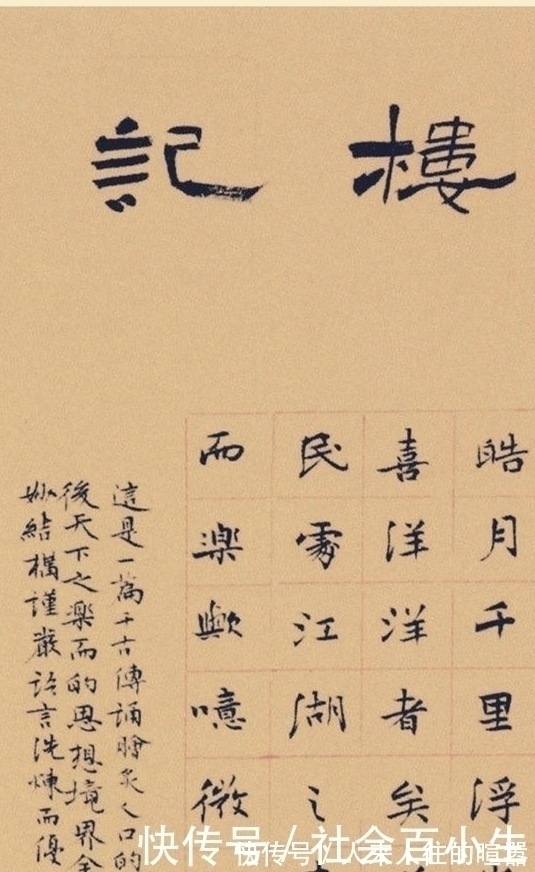 樓記
皓月千里浮
喜洋洋者矣
民處江湖之
而樂歟噫微
這是一篇千古傳誦膾炙人口的
後天下之樂而的思想境界全
妙結構謹嚴語言洗煉而優
快传号 / 社会百小生
快传号/人来人往的喧嚣